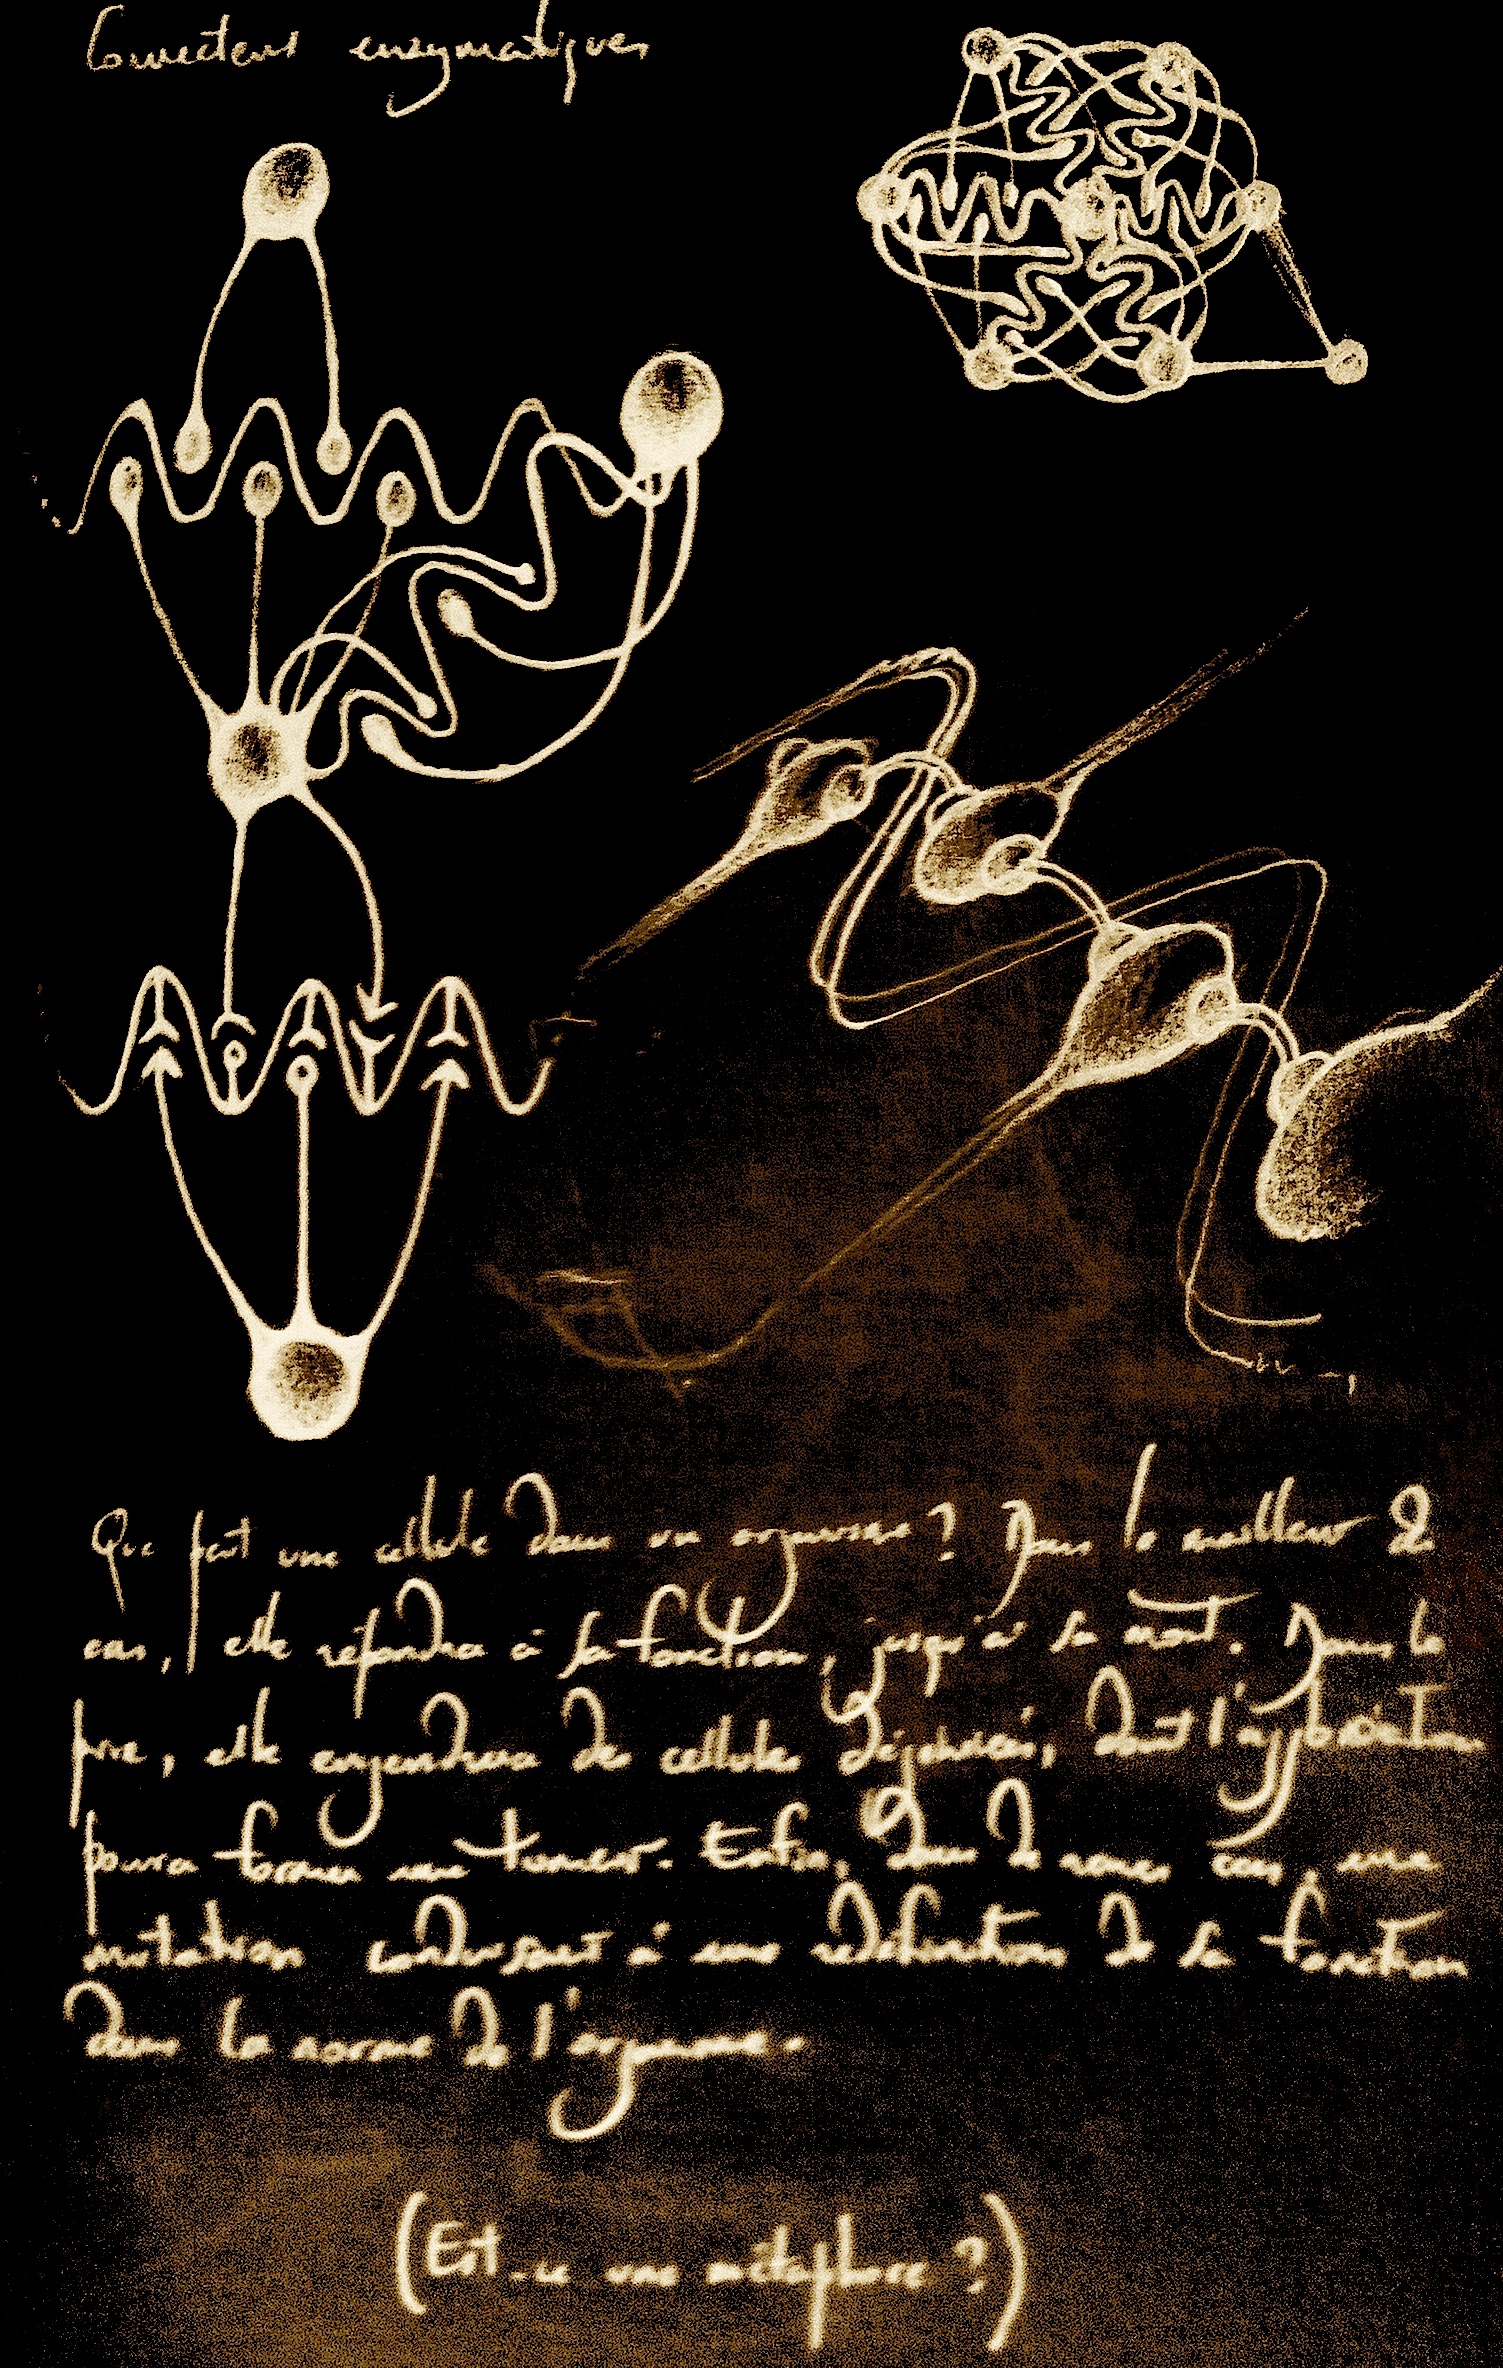 Connecteurs enzymatiques
Que fait une cellule dans un organisme ? Dans le meilleur des
cas, elle répondra à sa fonction, jusqu'à sa mort. Dans le
pire, elle engendrera des cellules dont l'agglomération
pourra former une tumeur. Enfin, dans de rares cas, une
mutation conduisant à une redéfinition de sa fonction
dans la norme de l'organisme.
(Est-ce une métaphore ?)